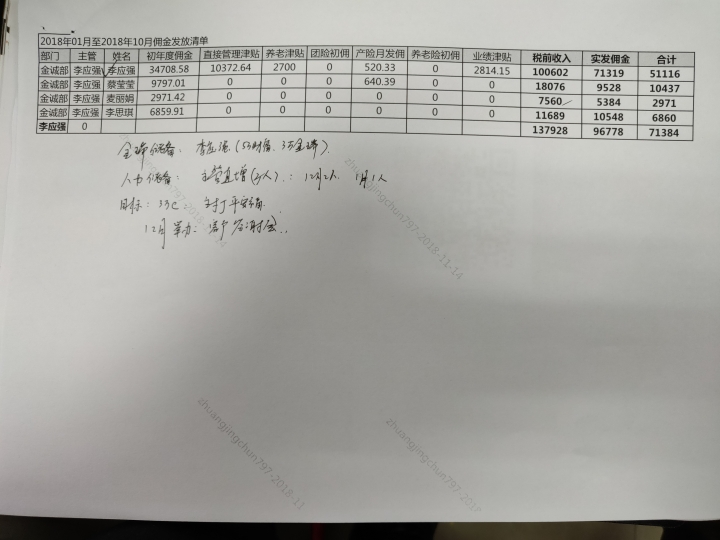 2018年01月至2018年10月佣金发放清单
部门 主管 姓名 初年度佣金 直接管理津贴 养老津贴 团险初佣 产险月发佣 养老险初佣 业绩津贴 税前收入 实发佣金 合计
金诚部 李应强 李应强 34708.58 10372.64 2700 0 520.33 0 2814.15 100602 71319 51116
金诚部 李应强 蔡莹莹 9797.01 0 0 0 640.39 0 0 18076 9528 10437
金诚部 李应强 麦丽娟 2971.42 0 0 0 0 0 0 7560 5384 2971
金诚部 李应强 李思琪 6859.91 0 0 0 0 0 0 11689 10548 6860
李应强 0 137928 96778 71384
人力储备: 主管直增(3人): 12月2人 1月1人
目标: 33C: 主打平安福
12月举办: 客户答谢会
zhuangjingchun797-2018-11-14
zhuangjingchun797-2018-11-14
zhuangjingchun797-2018-11
zhuangjingchun797-2018